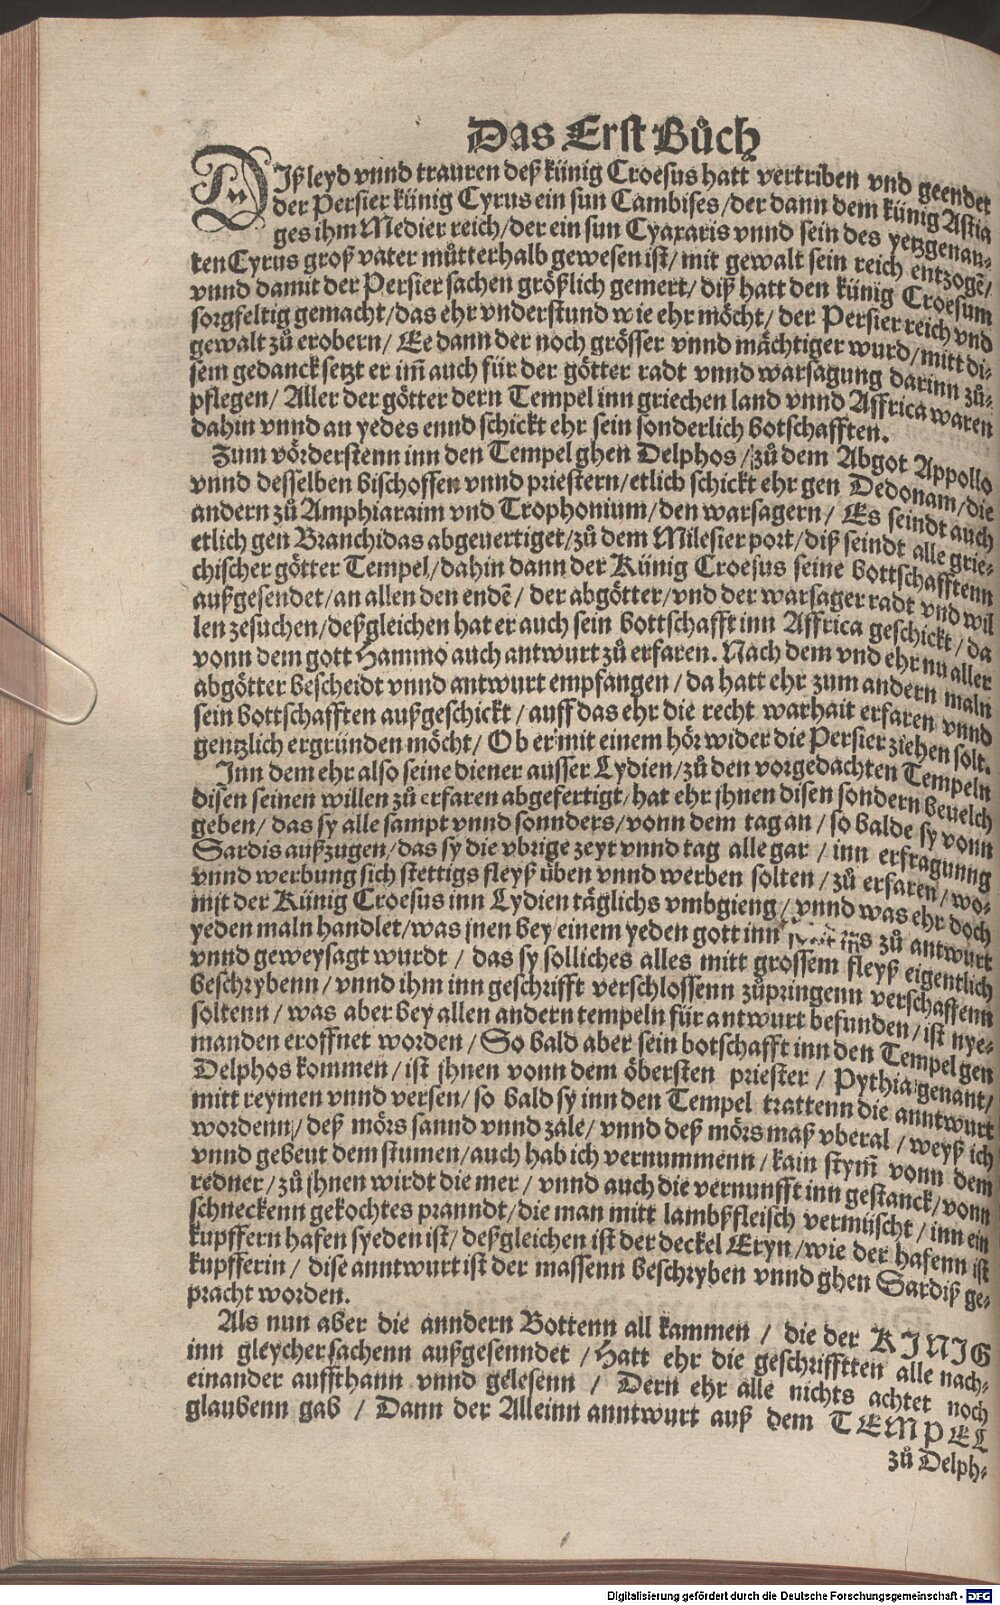 Das Erst Bůch
DIß leyd vnnd trauren deß künig Croesus hatt vertriben vnd geendet
der Persier künig Cyrus ein sun Cambises/der dann dem künig Astia
ges ihm Medier reich/der ein sun Cyaxaris vnnd sein des yetzgenan-
ten Cyrus groß vater můtterhalb gewesen ist/ mit gewalt sein reich entzogē/
vnnd damit der Persier sachen größlich gemert/ diß hatt den künig Croesum
sorgfeltig gemacht/das ehr vnderstund wie ehr möcht/ der Persier reich vnd
gewalt zů erobern/ Ee dann der noch grösser vnnd mächtiger wurd/mitt di-
sem gedanck setzt er im̄ auch für der götter radt vnnd warsagung darinn zů-
pflegen/ Aller der götter dern Tempel inn griechen land vnnd Affrica waren
dahin vnnd an yedes ennd schickt ehr sein sonderlich botschafften.
Zum vörderstenn inn den Tempel ghen Delphos/zů dem Abgot Appollo
vnnd desselben bischoffen vnnd priestern/etlich schickt ehr gen Dedonam/die
andern zů Amphiaraim vnd Trophonium/den warsagern/ Es seindt auch
etlich gen Branchidas abgeuertiget/zů dem Milesier port/diß seindt alle grie-
chischer götter Tempel/dahin dann der Künig Croesus seine bottschafftenn
außgesendet/an allen den endē/ der abgötter/vnd der warsager radt vnd wil
len zesuchen/deßgleichen hat er auch sein bottschafft inn Affrica geschickt/da
vonn dem gott Hammo auch antwurt zů erfaren. Nach dem vnd ehr nu aller
abgötter bescheidt vnnd antwurt empfangen/da hatt ehr zum andern maln
sein bottschafften außgeschickt/auff das ehr die recht warhait erfaren vnnd
gentzlich ergründen möcht/ Ob er mit einem hör wider die Persier ziehen solt.
Inn dem ehr also seine diener ausser Lydien/zů den vorgedachten Tempeln
disen seinen willen zů erfaren abgefertigt/hat ehr jhnen disen sondern beuelch
geben/das sy alle sampt vnnd sonnders/vonn dem tag an/so balde sy vonn
Sardis außzugen/das sy die vbrige zeyt vnnd tag alle gar/inn erfragunng
vnnd werbung sich stettigs fleyß üben vnnd werben solten/zů erfaren/wo-
mit der Künig Croesus inn Lydien täglichs vmbgieng/vnnd was ehr doch
yeden maln handlet/was jnen bey einem yeden gott inn zů antwurt
vnnd geweysagt wurdt/das sy solliches alles mitt grossem fleyß eigentlich
beschrybenn/vnnd ihm inn geschrifft verschlossenn zůpringenn verschaffenn
soltenn/was aber bey allen andern tempeln für antwurt befunden/ist nye-
manden eroffnet worden/So bald aber sein botschafft inn den Tempel gen
Delphos kommen/ist jhnen vonn dem öbersten priester/Pythia genant/
mitt reymen vnnd versen/so bald sy inn den Tempel trattenn die anntwurt
wordenn/deß mörs sannd vnnd zale/vnnd deß mörs maß vberal/weyß ich
vnnd gebeut dem stumen/auch hab ich vernummenn/kain stym̄ vonn dem
redner/zů jhnen wirdt die mer/vnnd auch die vernunfft inn gestanck/vonn
schneckenn gekochtes pranndt/die man mitt lambßfleisch vermüscht/inn ein
kupffern hafen syeden ist/deßgleichen ist der deckel Eryn/wie der hafenn ist
kupfferin/dise anntwurt ist der massenn beschryben vnnd ghen Sardiß ge-
pracht worden.
Als nun aber die anndern Bottenn all kammen/die der KINIG
inn gleycher sachenn außgesenndet/Hatt ehr die geschrifftten alle nach-
einander auffthann vnnd gelesenn/Dern ehr alle nichts achtet noch
glaubenn gab/Dann der Alleinn anntwurt auß dem TEMPEL
zů Delph-
Digitalisierung gefördert durch die Deutsche Forschungsgemeinschaft - DFG